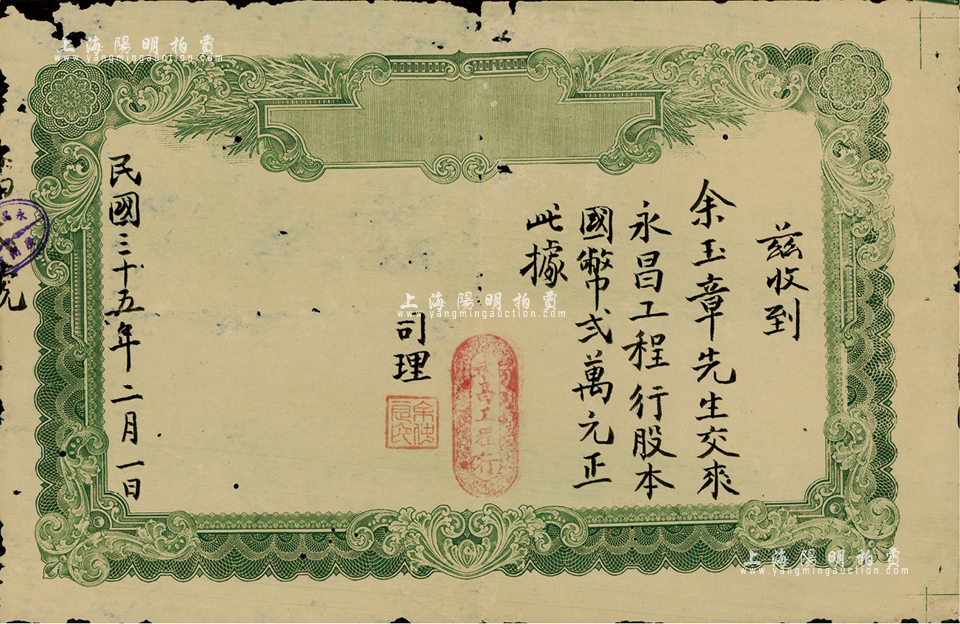 茲收到
余玉章先生交來
永昌工程行股本
國幣弍萬元正
此據
司理
永昌工程行
民國三十五年二月一日
永昌
上海陽明拍賣
www.yangmingauction.com
上海陽明拍賣
www.yangmingauction.com
上海陽明拍賣
www.yangmingauction.com